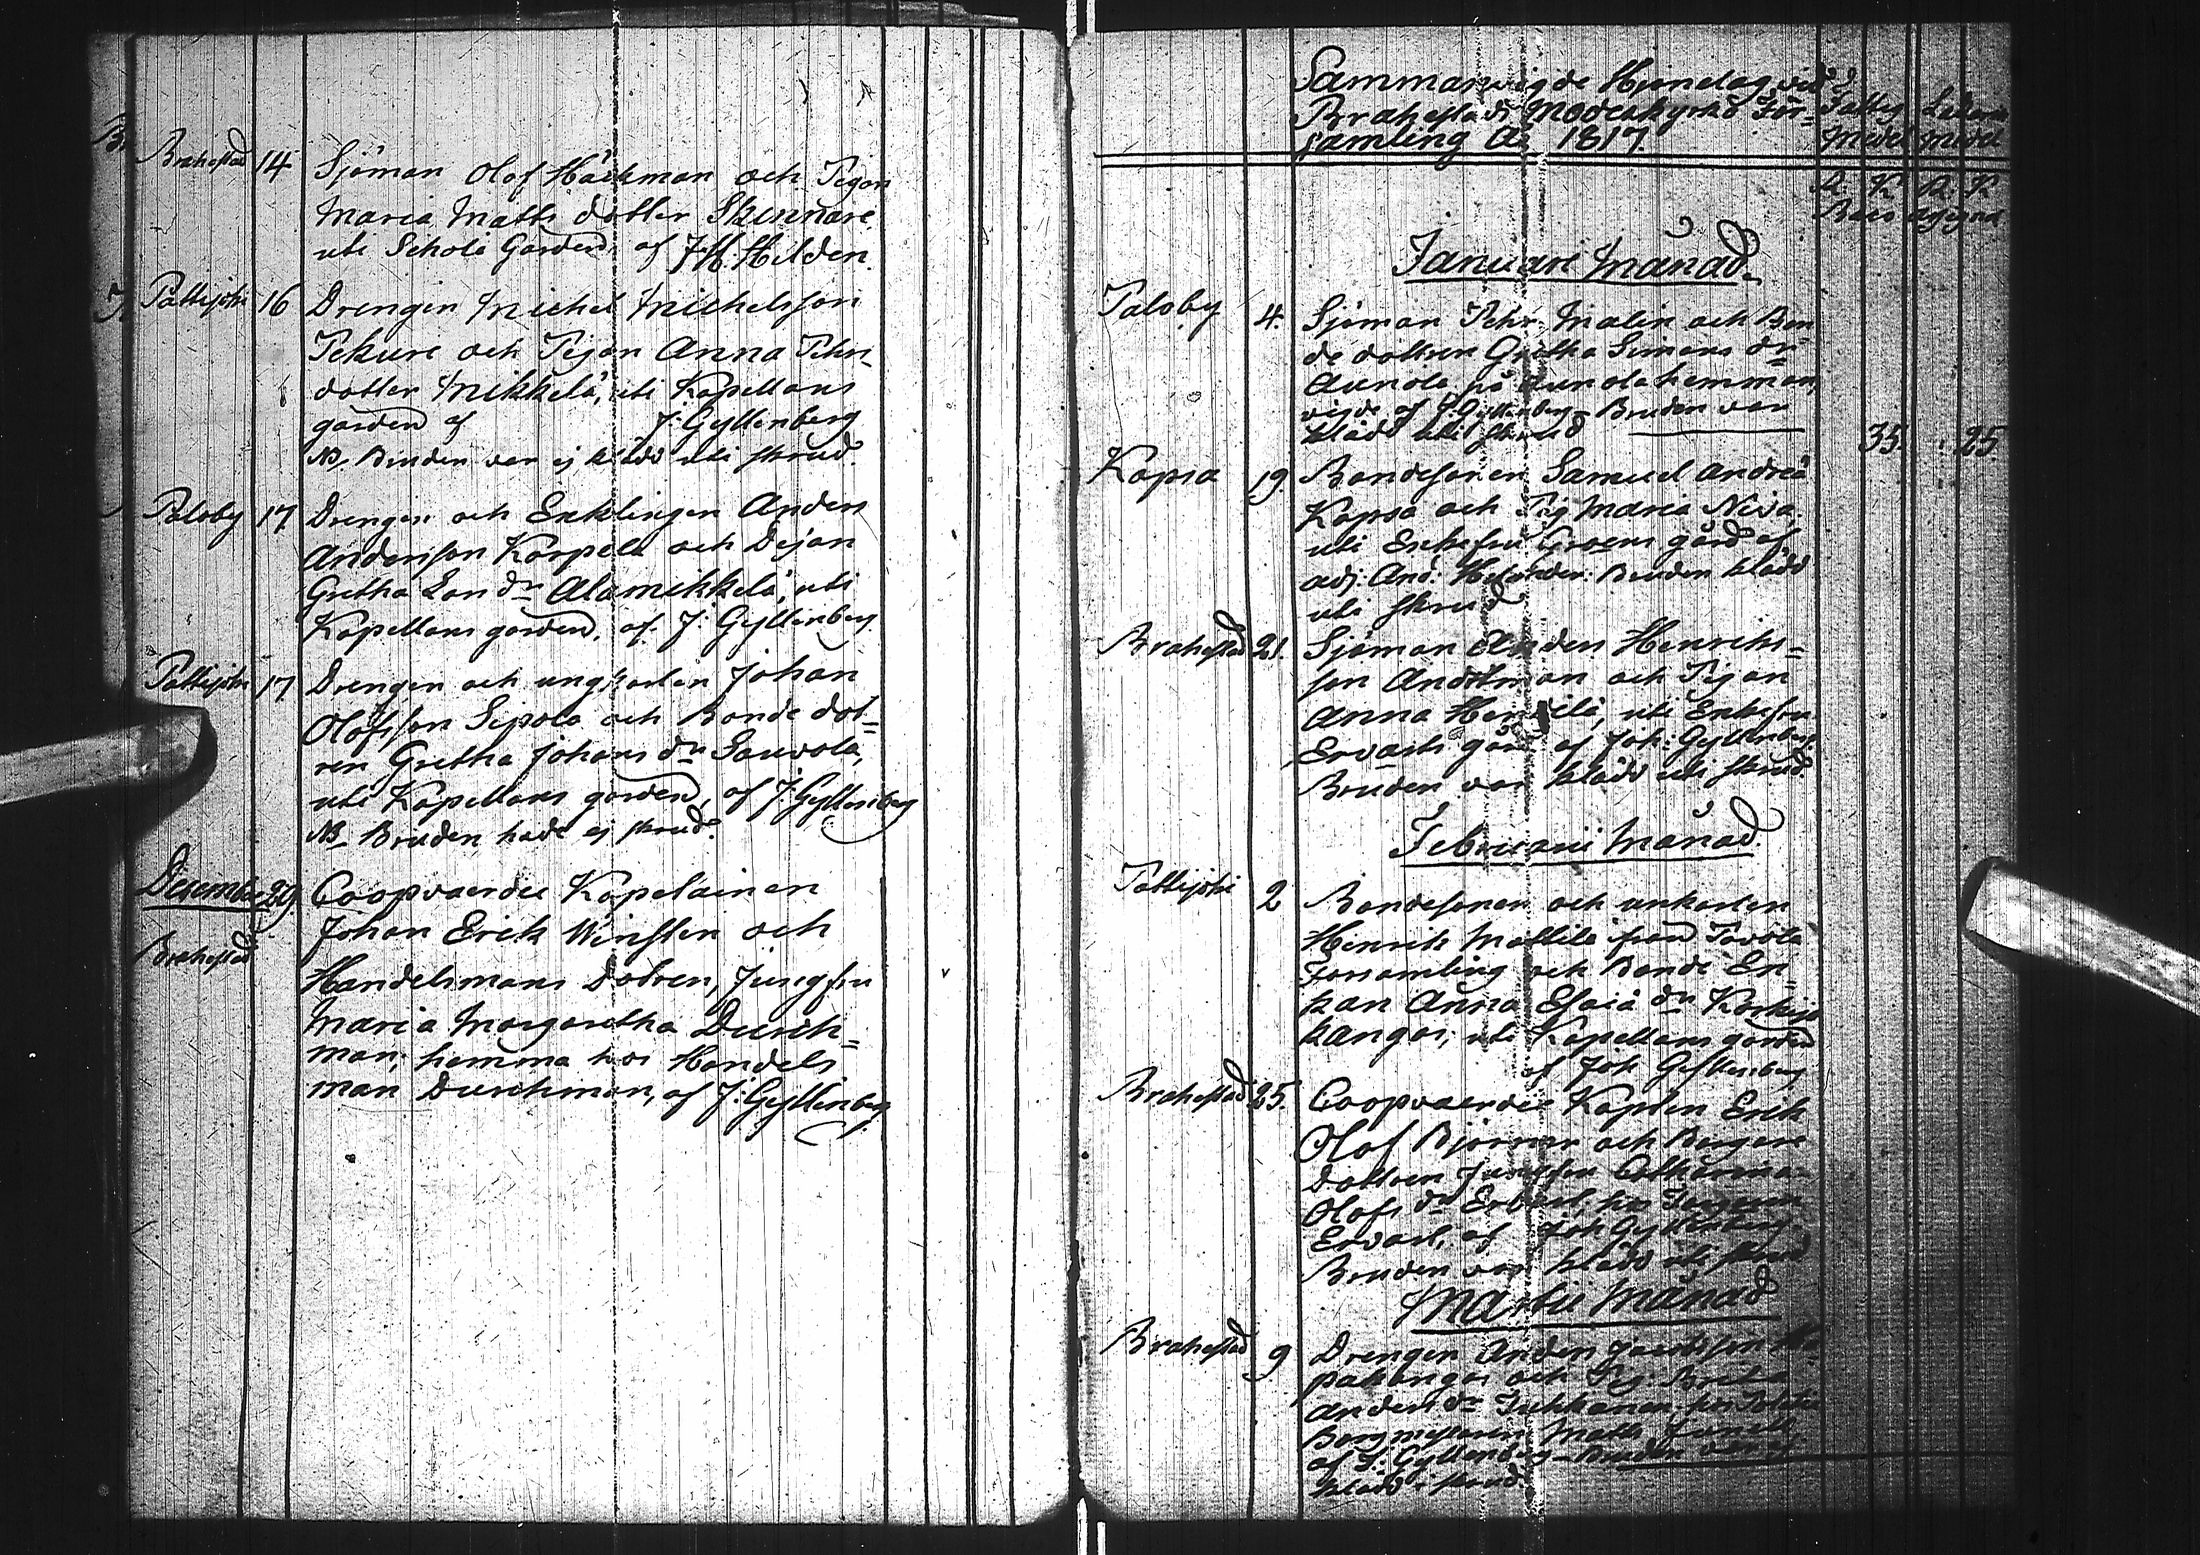 Brahestad 14 Sjöman Olof Häckman och Pigan
Maria Matts dotter Skinnare,
uti Schola Gården, af J.H. Hilden.
Pattijoki 16 Drengen Michel Michelsson
Pekuri och Pigan Anna Pehrs
dotter Mikkelä, uti Kapellans
gården af J: Gyllenberg
NB. Bruden var ej klädd uti skrud.
Paloby 17 Drengen och Enklingen Anders
Andersson Karpela och Pigan
Gretha Lars dr Alamikkelä, uti
Kapellans gården, af J: Gyllenberg
Pattijoki 17 Drengen och ungkarlen Johan
Olofsson Sipola och Bonde dot=
ren Gretha Johans dr Sauvola,
uti Kapellans gården, af J: Gyllenberg
NB. Bruden hade ej skrud.
December 29 Coopvaerdie Kapetainen
Brahestad Johan Erik Winsten och
Handelsmans Dotren, Jungfru
Maria Margaretha Durch=
man, hemma hos Handels
man Durchman, af J: Gyllenberg
Sammanvigde Hjonelag vid
Brahestads Moderkyrko För=
samling Ao 1817.
Fattig Medel
medel
R K R K
Banco
Januari Månad
Paloby 4. Sjöman Pehr Malin och Bon
de dottren Gretha Simons dr
Aunola på Aunola hemman,
vigde af J: Gyllenberg - Bruden var
klädd uti skrud 35. 25
Kopsa 19. Bondesonen Samuel Andreä
Kopsa och Pig. Maria Niva.
uti gård af
adj: And: Bruden klädd
uti skrud
Brahestad 21. Sjöman Anders Henriks=
son Andman och Pigan
Anna uti
Ervasts gård af Joh: Gyllenberg.
Bruden var klädd uti skrud.
Februarii Månad.
Pattijoki 2 Bondesonen och unkarlen
Henrik Mattila från
Församling och Bonde En=
kan Anna Esaiä dr
kangas, uti Kapellans gården
af Joh Gyllenberg
Brahestad 25. Coopvaerdie Kapten Erik
Olof Björman och Borgare
Dottren Jungfru Catharina
Olofs dr Ervast, hos
Ervast, af Joh Gyllenberg.
Bruden var klädd uti skrud
Martii Månad
Brahestad 9 Drengen Anders Jacobsson
pakangas och Pig. Brita
Anders dr hos
Borgmästaren Matts
af J: Gyllenberg - Bruden var ej
klädd i skrud.